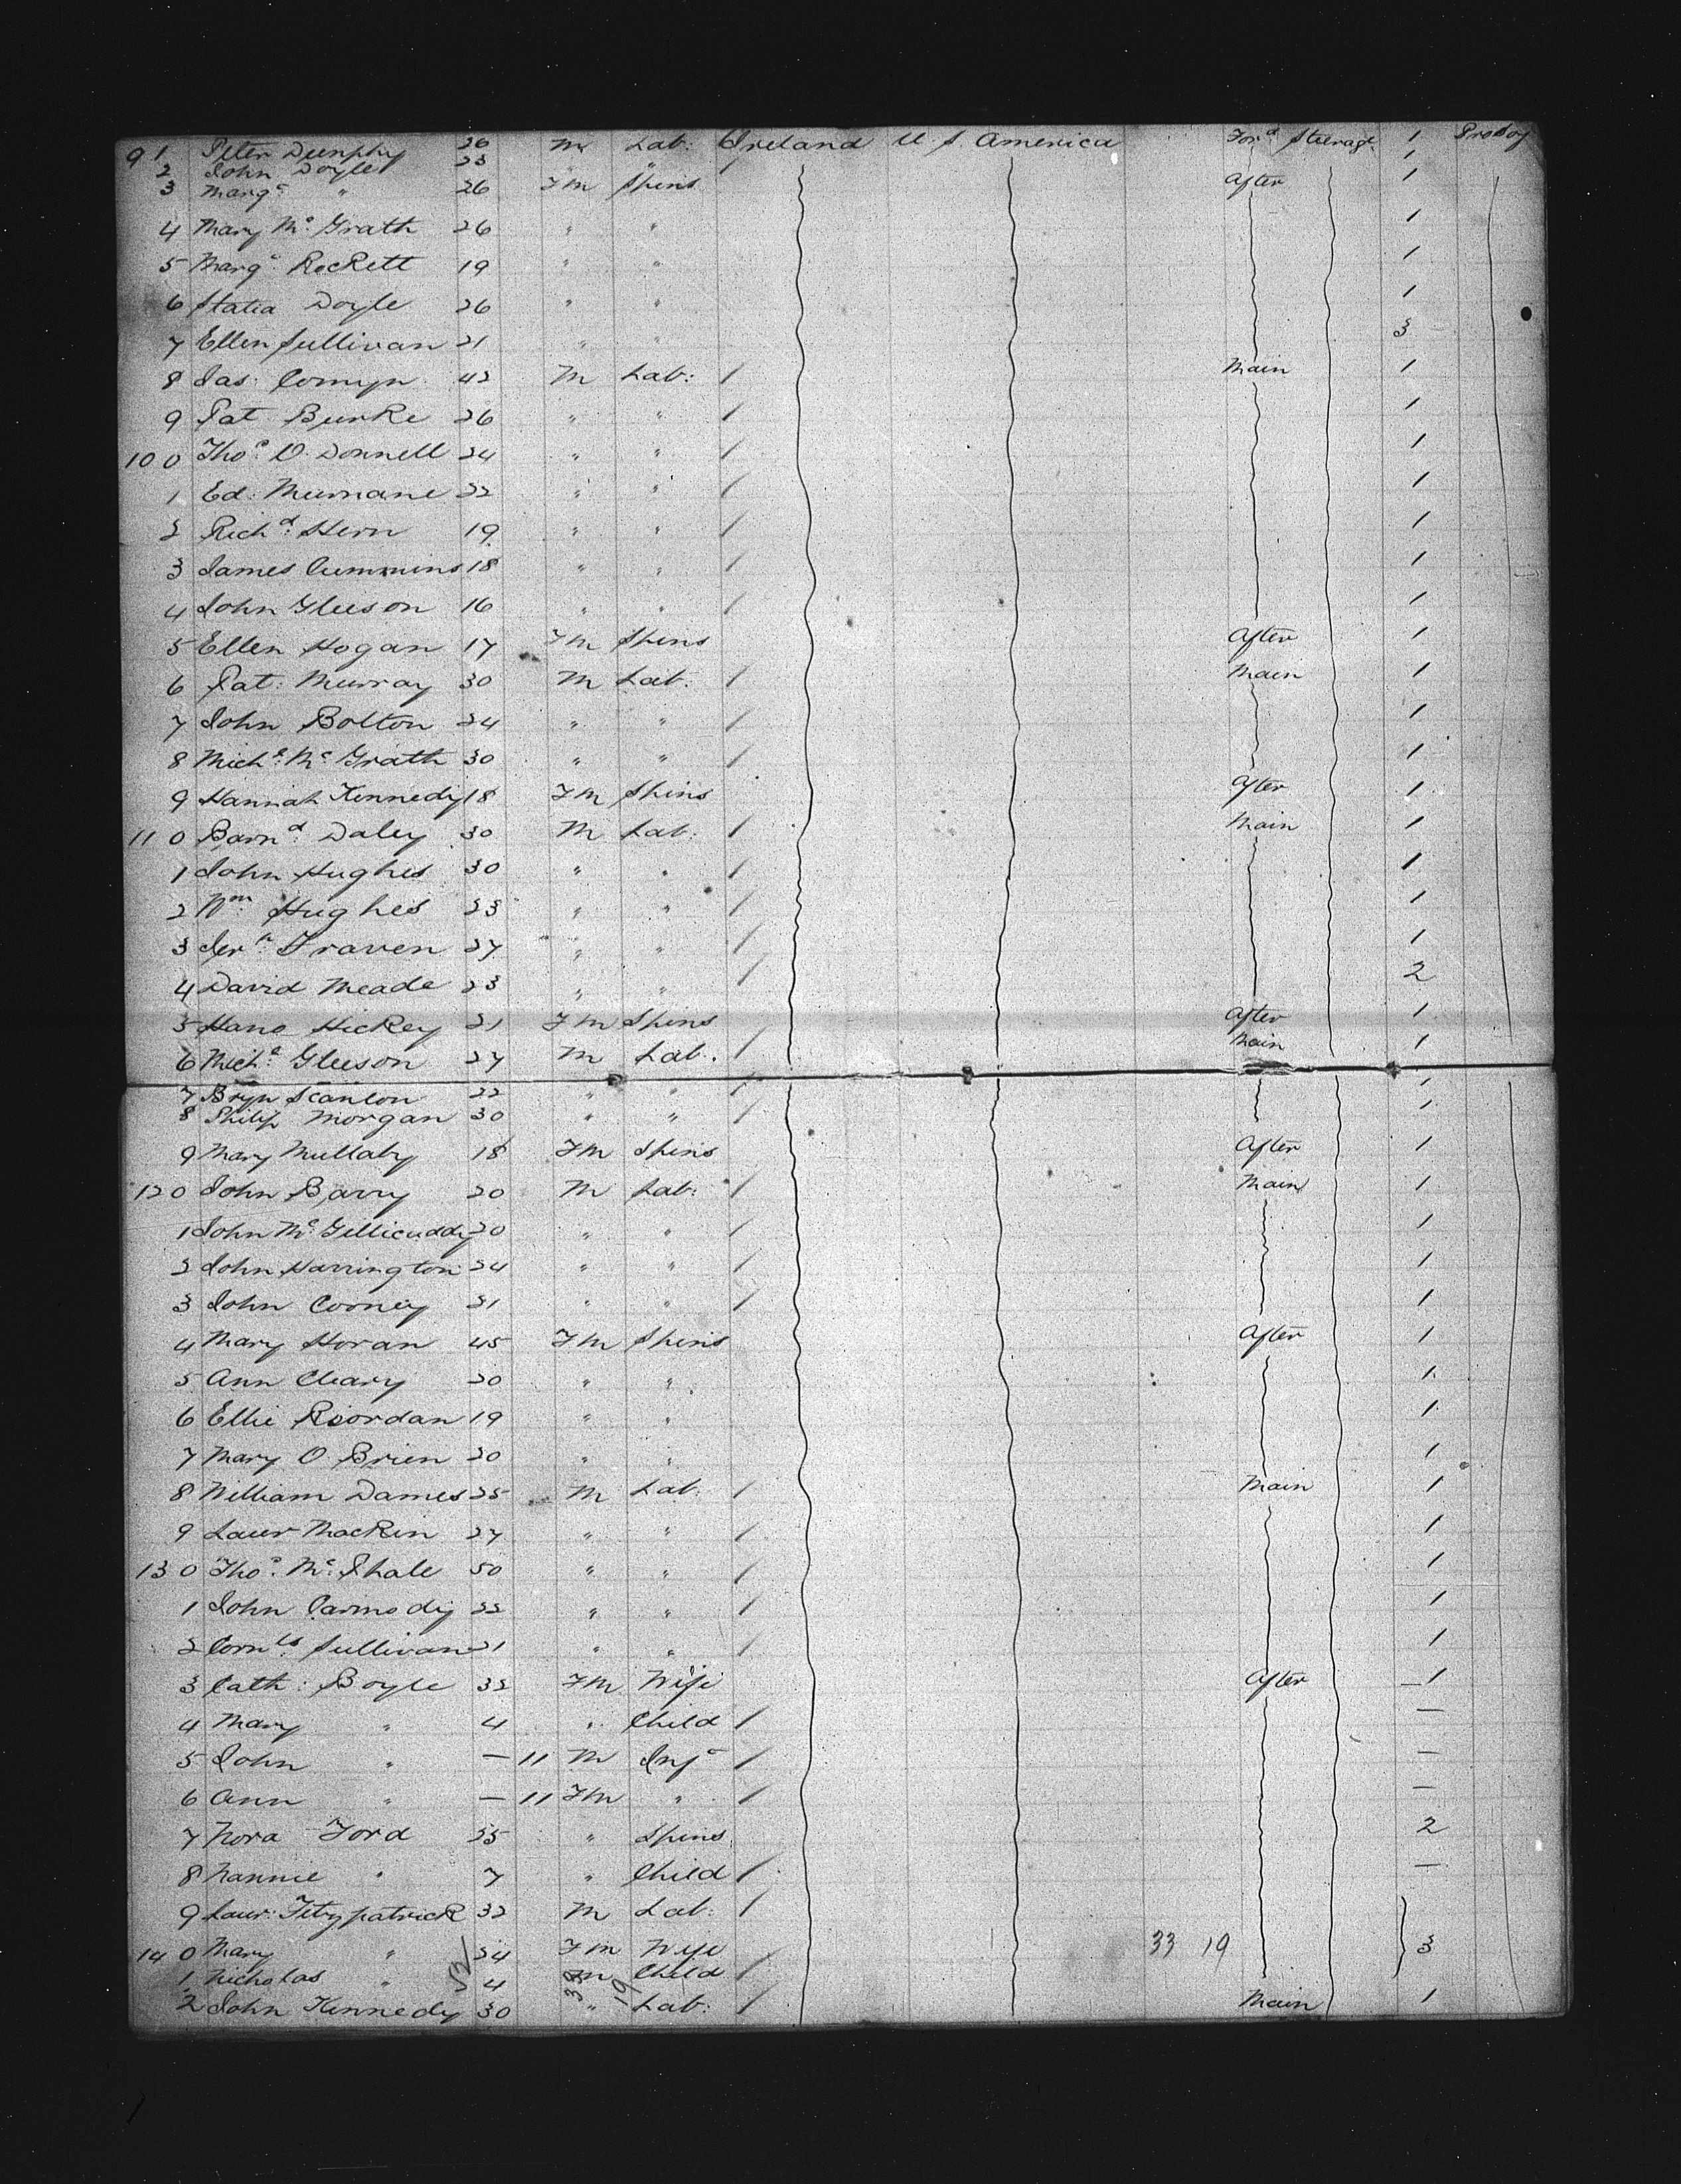 91 Peter Dunphy 26 M Lab: Ireland U S America For^d Steerage 1
2 John Doyle 23 " 1
3 Marg^t " 26 Fm Spins After 1
4 Mary Mc Grath 26 " " 1
5 Marg^t Rockett 19 " " 1
6 Statia Doyle 26 " " 1
7 Ellen Sullivan 21 " " 3
8 Jas: Comyn 42 M Lab: / Main 1
9 Pat Burke 26 " " / 1
100 Tho^s O Donnell 24 " " / 1
1 Ed: Murnane 22 " " / 1
2 Rich^d Hern 19 " " / 1
3 James Cummins 18 " " / 1
4 John Gleeson 16 " " / 1
5 Ellen Hogan 17 Fm Spins After 1
6 Pat: Murray 30 M Lab: / Main 1
7 John Bolton 24 " " / 1
8 Mich^l Mc Grath 30 " " / 1
9 Hannah Kennedy 18 Fm Spins After 1
110 Barn^d Daley 30 M Lab: / Main 1
1 John Hughes 30 " " / 1
2 Wm Hughes 23 " " / 1
3 Jer^h Fraven 27 " " / 1
4 David Meade 23 " " / 2
5 Hano Hickey 21 Fm Spins After 1
6 Mich^l Gleeson 27 M Lab. / Main 1
7 Bryn Scanlon 22 " " / 1
8 Philip Morgan 30 " " / 1
9 Mary Mullaly 18 Fm Spins After 1
120 John Barry 20 M Lab: / Main 1
1 John Mc Gillicuddy 20 " " / 1
2 John Harrington 24 " " / 1
3 John Cooney 21 " " / 1
4 Mary Horan 45 Fm Spins After 1
5 Ann Cleary 20 " " 1
6 Ellie Riordan 19 " " 1
7 Mary O Brien 20 " " 1
8 William Dames 25 M Lab: / Main 1
9 Laur Mackin 27 " " / 1
130 Tho^s Mc Phale 50 " " / 1
1 John Carmody 22 " " / 1
2 Corn^ls Sullivan 21 " " / 1
3 Cath: Boyle 32 Fm Wife After 1
4 Mary " 4 " Child / —
5 John " — 11 M Inf^t / —
6 Ann " — 11 Fm " / —
7 Nora Ford 35 " Spins 2
8 Nannie " 7 " Child / —
9 Laur: Fitzpatrick 32 M Lab: /
140 Mary " 24 Fm Wife 33 19 3
1 Nicholas " 4 M Child /
2 John Kennedy 30 " Lab: / Main 1